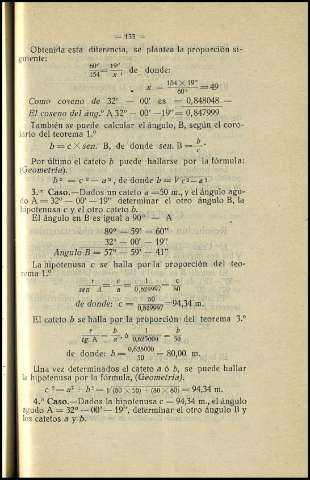 — 133 —
Obtenida esta diferencia, se plantea la proporción si-
guiente:
60" / 154 = 19" / x ; de donde:
x = 154 × 19" / 60" = 49
Como coseno de 32º — 00' es = 0,848048 —
El coseno del áng.º A 32º — 00' —19"= 0,847999
También se puede calcular el ángulo, B, según el coro-
lario del teorema 1.º
b = c × sen. B, de donde sen. B = b / c .
Por último el cateto b puede hallarse por la fórmula:
(Geometría).
b² = c² — a², de donde b = √c² — a²
3.er Caso.—Dados un cateto a =50 m., y el ángulo agu-
do A = 32º — 00' — 19" determinar el otro ángulo B, la
hipotenusa c y el otro cateto b.
El ángulo en B es igual a 90º — A
89º — 59' — 60"
32º — 00' — 19"
Angulo B = 57º — 59' — 41"
La hipotenusa c se halla por la proporción del teo-
rema 1.º
r / sen A = c / a = 1 / 0,529997 = c / 50
de donde: c = 50 / 0,529997 =94,34 m.
El cateto b se halla por la proporción del teorema 3.º
r / tg. A = b / a , ó 1 / 0,625000 = b / 50
de donde: b = 0,625000 / 50 = 80,00 m.
Una vez determinados el cateto a ó b, se puede hallar
la hipotenusa por la fórmula, (Geometría).
c² = a² + b² = √(50 × 50) + (80 × 80) = 94,34 m.
4.º Caso.—Dados la hipotenusa c = 94,34 m., el ángulo
agudo A = 32º —00'— 19", determinar el otro ángulo B y
los catetos a y b.